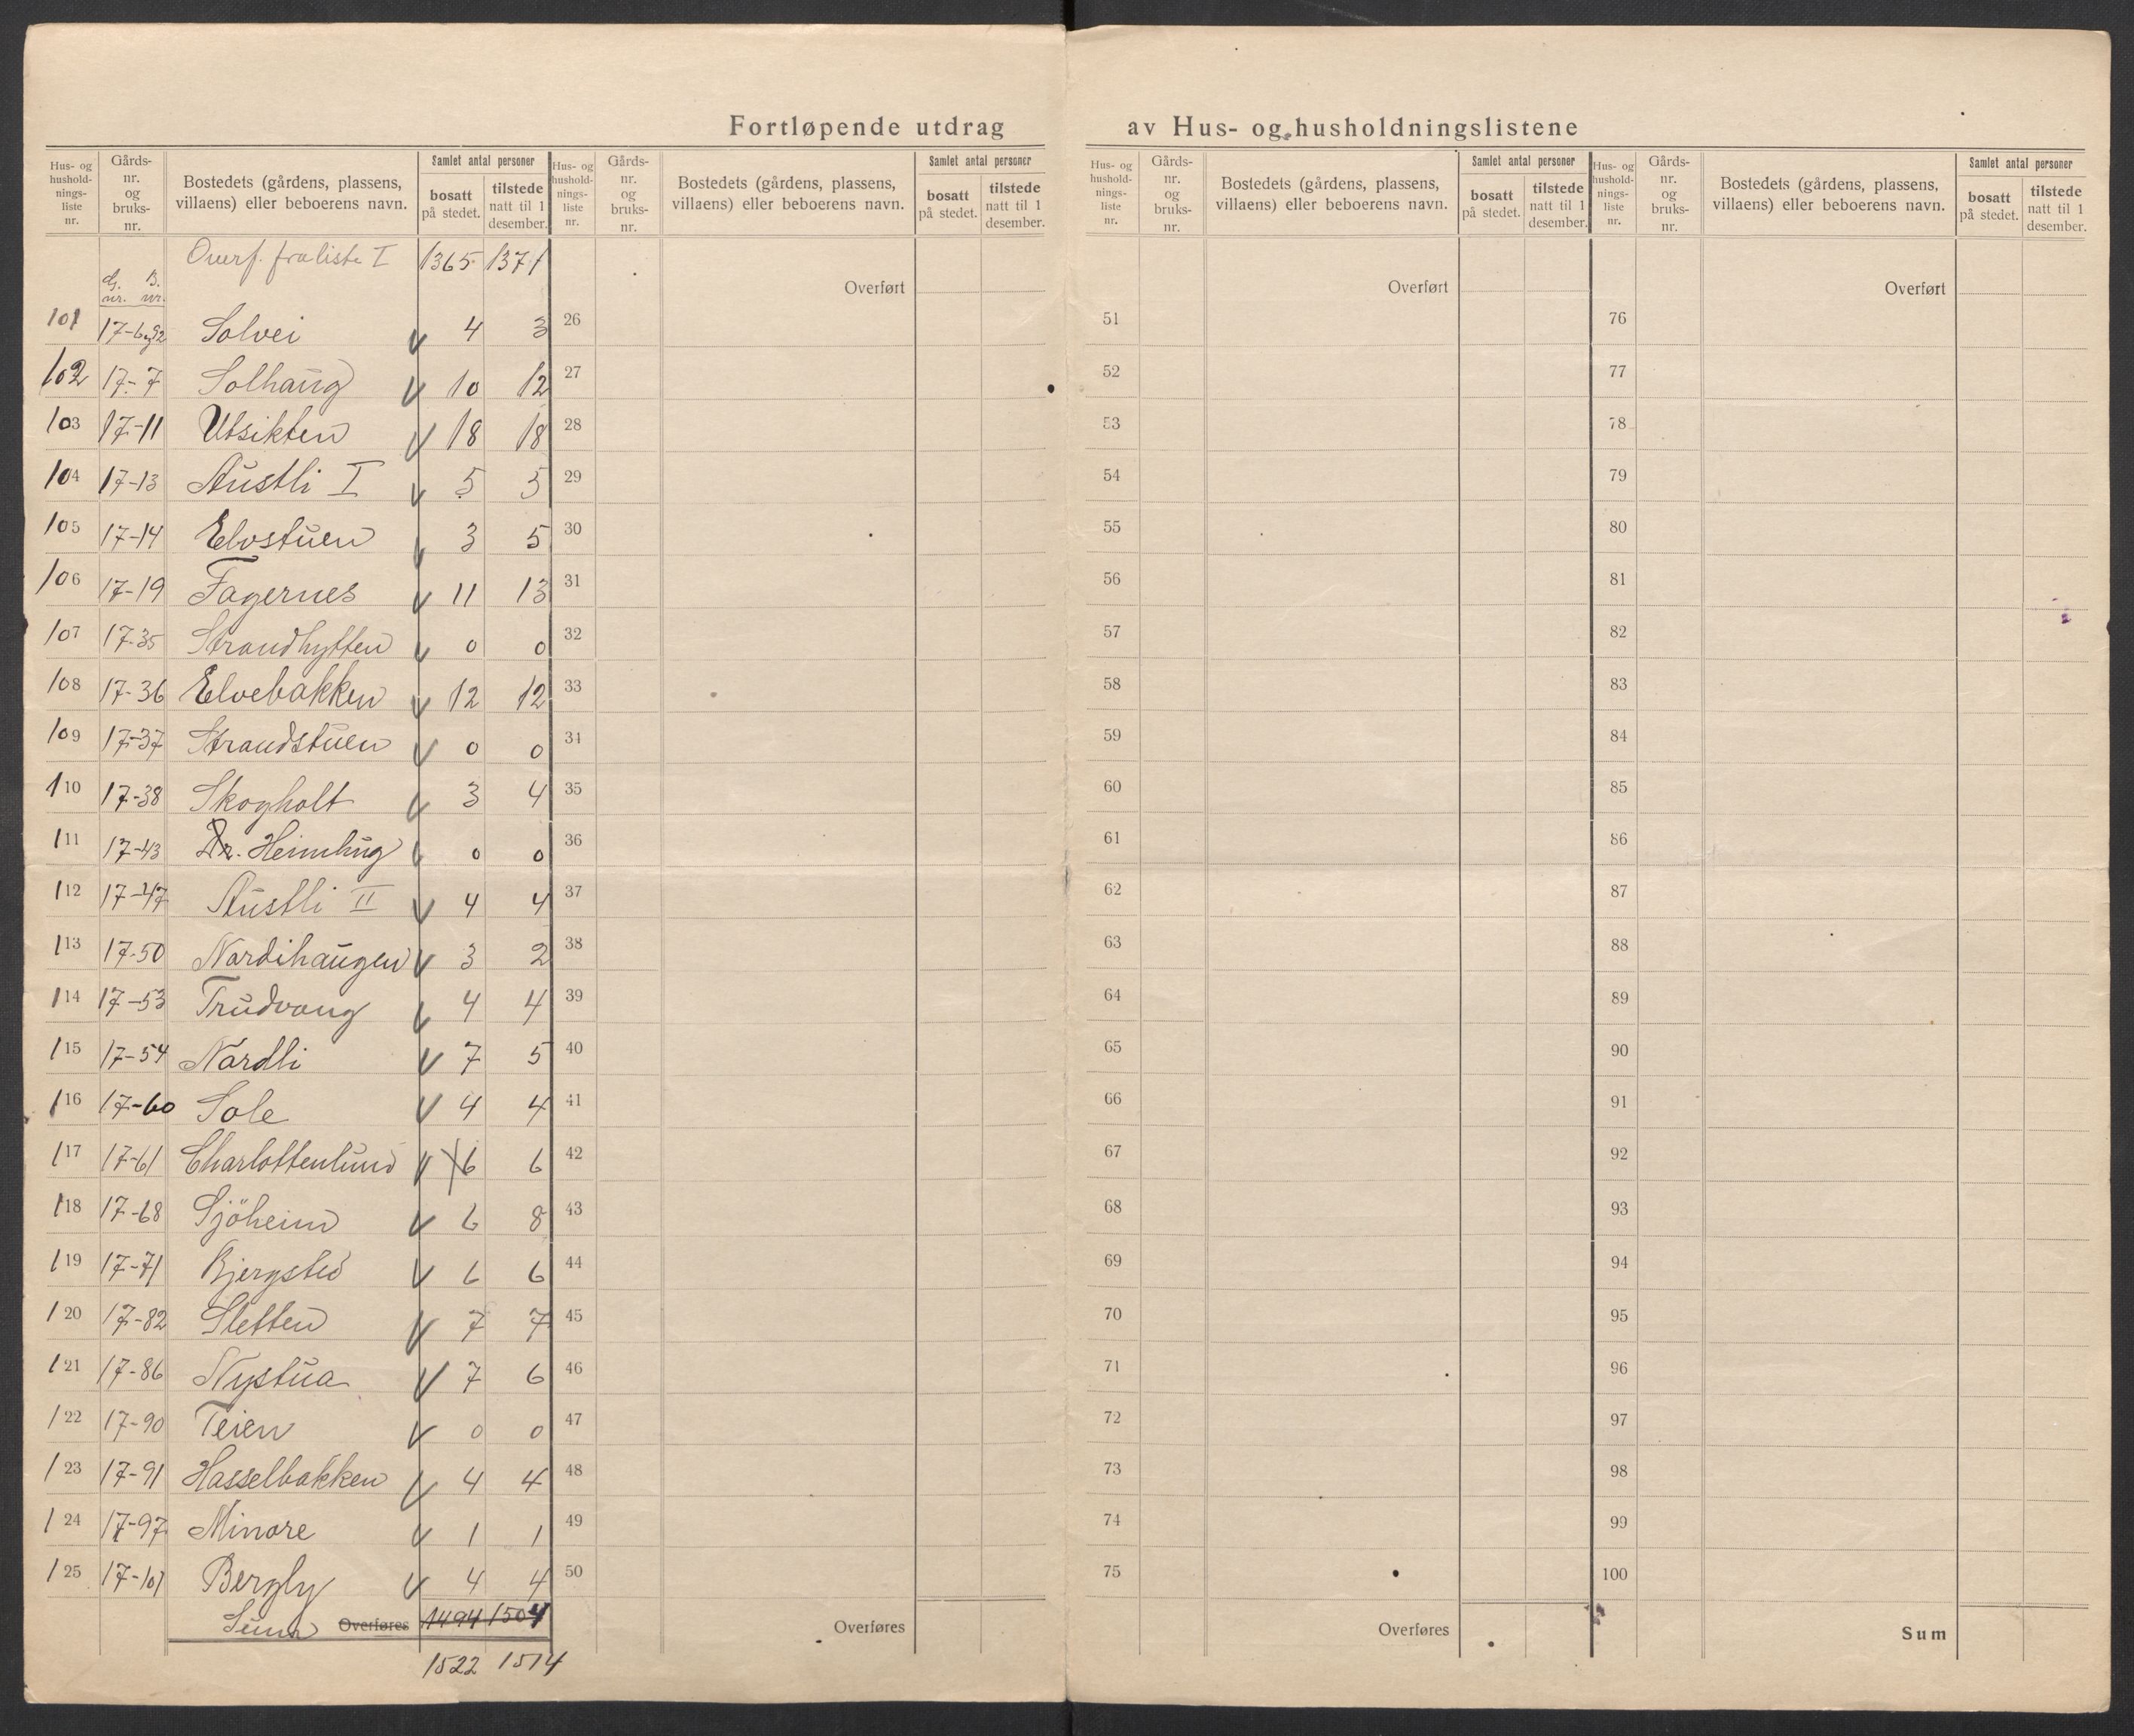 Fortløpende utdrag av Hus- og husholdningslistene
Hus- og husholdnings-liste nr. Gårds-nr. og bruks-nr. Bostedets (gårdens, plassens, villaens) eller beboerens navn. Samlet antal personer bosatt på stedet. tilstede natt til 1 desember.
Overf. fra liste I 1365 1371
G. nr. B. nr.
101 17-6og92 Solvei 4 3
102 17-7 Solhaug 10 12
103 17-11 Utsikten 18 18
104 17-13 Austli I 5 5
105 17-14 Elvstuen 3 5
106 17-19 Fagernes 11 13
107 17-35 Strandhytten 0 0
108 17-36 Elvebakken 12 12
109 17-37 Strandstuen 0 0
110 17-38 Skogholt 3 4
111 17-43 Heimhug 0 0
112 17-47 Austli II 4 4
113 17-50 Nordihaugen 3 2
114 17-53 Trudvang 4 4
115 17-54 Nordli 7 5
116 17-60 Sole 4 4
117 17-61 Charlottenlund 6 6
118 17-68 Sjöheim 6 8
119 17-71 Bjergsted 6 6
120 17-82 Sletten 7 7
121 17-86 Nystua 7 6
122 17-90 Teien 0 0
123 17-91 Hasselbakken 4 4
124 17-97 Minore 1 1
125 17-101 Bergly 4 4
Summa Overføres 1494 1504
1522 1514
Hus- og husholdnings-liste nr. Gårds-nr. og bruks-nr. Bostedets (gårdens, plassens, villaens) eller beboerens navn. Samlet antal personer bosatt på stedet. tilstede natt til 1 desember.
Overført
26
27
28
29
30
31
32
33
34
35
36
37
38
39
40
41
42
43
44
45
46
47
48
49
50
Overføres
Hus- og husholdnings-liste nr. Gårds-nr. og bruks-nr. Bostedets (gårdens, plassens, villaens) eller beboerens navn. Samlet antal personer bosatt på stedet. tilstede natt til 1 desember.
Overført
51
52
53
54
55
56
57
58
59
60
61
62
63
64
65
66
67
68
69
70
71
72
73
74
75
Overføres
Hus- og husholdnings-liste nr. Gårds-nr. og bruks-nr. Bostedets (gårdens, plassens, villaens) eller beboerens navn. Samlet antal personer bosatt på stedet. tilstede natt til 1 desember.
Overført
76
77
78
79
80
81
82
83
84
85
86
87
88
89
90
91
92
93
94
95
96
97
98
99
100
Sum